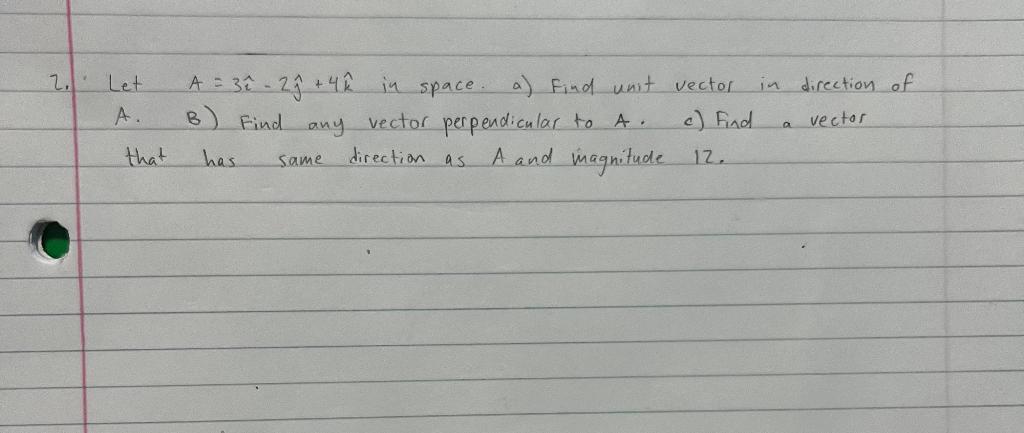 2. Let A = 3î - 2ĵ + 4k̂ in space. a) Find unit vector in direction of
A. B) Find any vector perpendicular to A. c) Find a vector
that has same direction as A and magnitude 12.